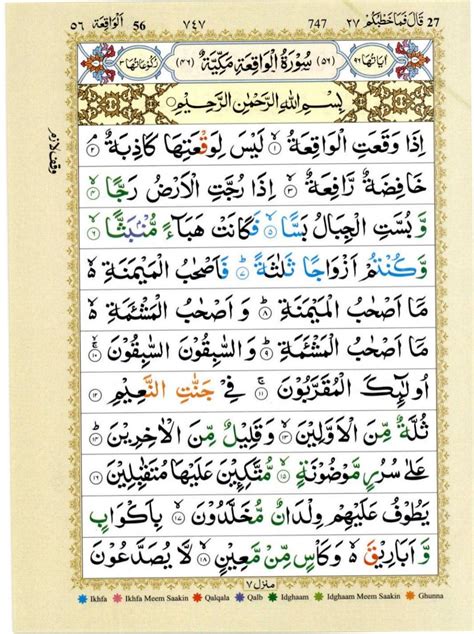 الواقعة ٥٦ 56 ٧٤٧ 747 قال فما خطبكم ٢٧ 27
اٰيَاتُهَا ٩٦ (٥٦) سُوْرَةُ الْوَاقِعَةِ مَكِّيَّةٌ (٤٦) رُكُوْعَاتُهَا ٣
بِسْمِ اللهِ الرَّحْمٰنِ الرَّحِيْمِ
اِذَا وَقَعَتِ الْوَاقِعَةُ ۙ ١ لَيْسَ لِوَقْعَتِهَا كَاذِبَةٌ ۘ ٢
وقف لازم
خَافِضَةٌ رَّافِعَةٌ ۙ ٣ اِذَا رُجَّتِ الْاَرْضُ رَجًّا ۙ ٤
وَّ بُسَّتِ الْجِبَالُ بَسًّا ۙ ٥ فَكَانَتْ هَبَآءً مُّنْۢبَثًّا ۙ ٦
وَّ كُنْتُمْ اَزْوَاجًا ثَلٰثَةً ؕ ٧ فَاَصْحٰبُ الْمَيْمَنَةِ ۙ۬
مَاۤ اَصْحٰبُ الْمَيْمَنَةِ ؕ ٨ وَ اَصْحٰبُ الْمَشْـَٔمَةِ ۙ۬
مَاۤ اَصْحٰبُ الْمَشْـَٔمَةِ ؕ ٩ وَ السّٰبِقُوْنَ السّٰبِقُوْنَ ۚۙ ١٠
اُولٰٓئِكَ الْمُقَرَّبُوْنَ ۚ ١١ فِيْ جَنّٰتِ النَّعِيْمِ ١٢
ثُلَّةٌ مِّنَ الْاَوَّلِيْنَ ۙ ١٣ وَ قَلِيْلٌ مِّنَ الْاٰخِرِيْنَ ؕ ١٤
عَلٰى سُرُرٍ مَّوْضُوْنَةٍ ۙ ١٥ مُّتَّكِـِٕيْنَ عَلَيْهَا مُتَقٰبِلِيْنَ ١٦
يَطُوْفُ عَلَيْهِمْ وِلْدَانٌ مُّخَلَّدُوْنَ ۙ ١٧ بِاَكْوَابٍ
وَّ اَبَارِيْقَ ۙ۬ وَ كَاْسٍ مِّنْ مَّعِيْنٍ ۙ ١٨ لَّا يُصَدَّعُوْنَ
منزل ٧
Ikhfa Ikhfa Meem Saakin Qalqala Qalb Idghaam Idghaam Meem Saakin Ghunna